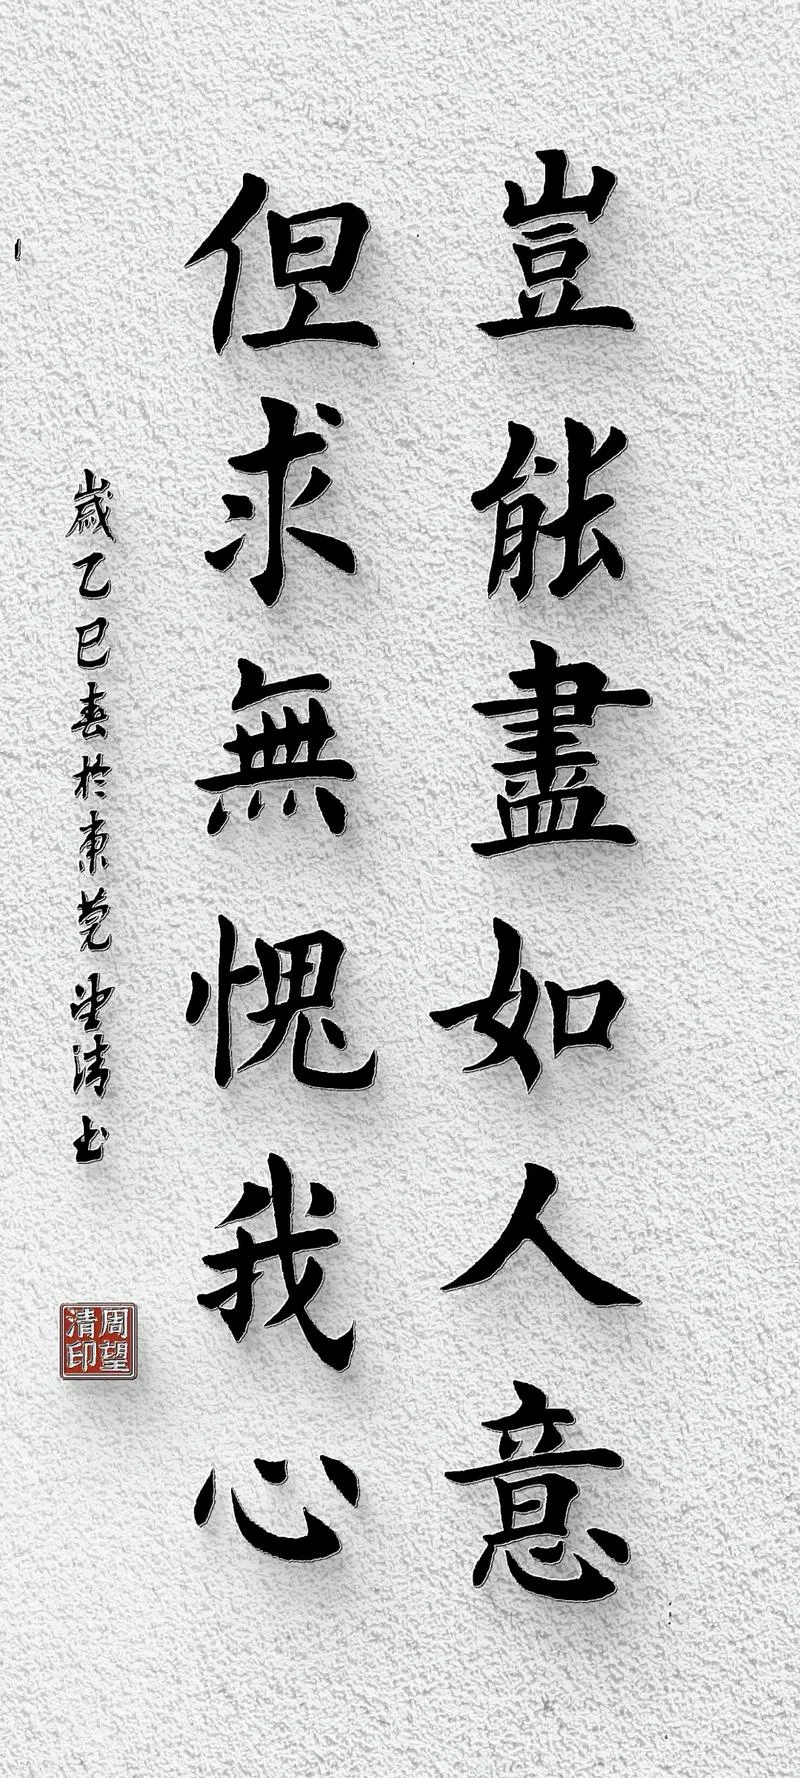 豈能盡如人意
但求無愧我心
歲乙巳春於東莞望清书
周望清印